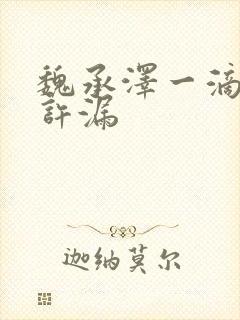 魏承澤一滴
許漏
迦納莫尔